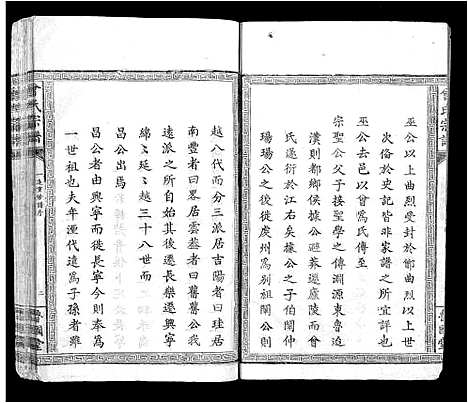 巫公以上由曲烈受封於鄫曲烈
次俗於史記皆非家譜之所宜詳也
巫公去邑以曾爲氏傳至
宗聖公父子接聖學之傳淵源東魯迨
漢則都鄉侯據公避莽遷廬陵而會
氏遂衍於江右矣據公之子伯閩仲
瑒瑒公徙居虔州爲别祖公於是公
越八代而分三派居吉陽者曰珪居
南豐者曰畧居雲葢者曰耆耆公我
遠派之所自始其後遷長樂遷興寧
綿綿延延三十八世而
昌公出焉
昌公者由興寧而徙興寧今則奉爲
一世祖也夫年湮代遠爲子孫者雖
曾氏宗譜
魯國堂